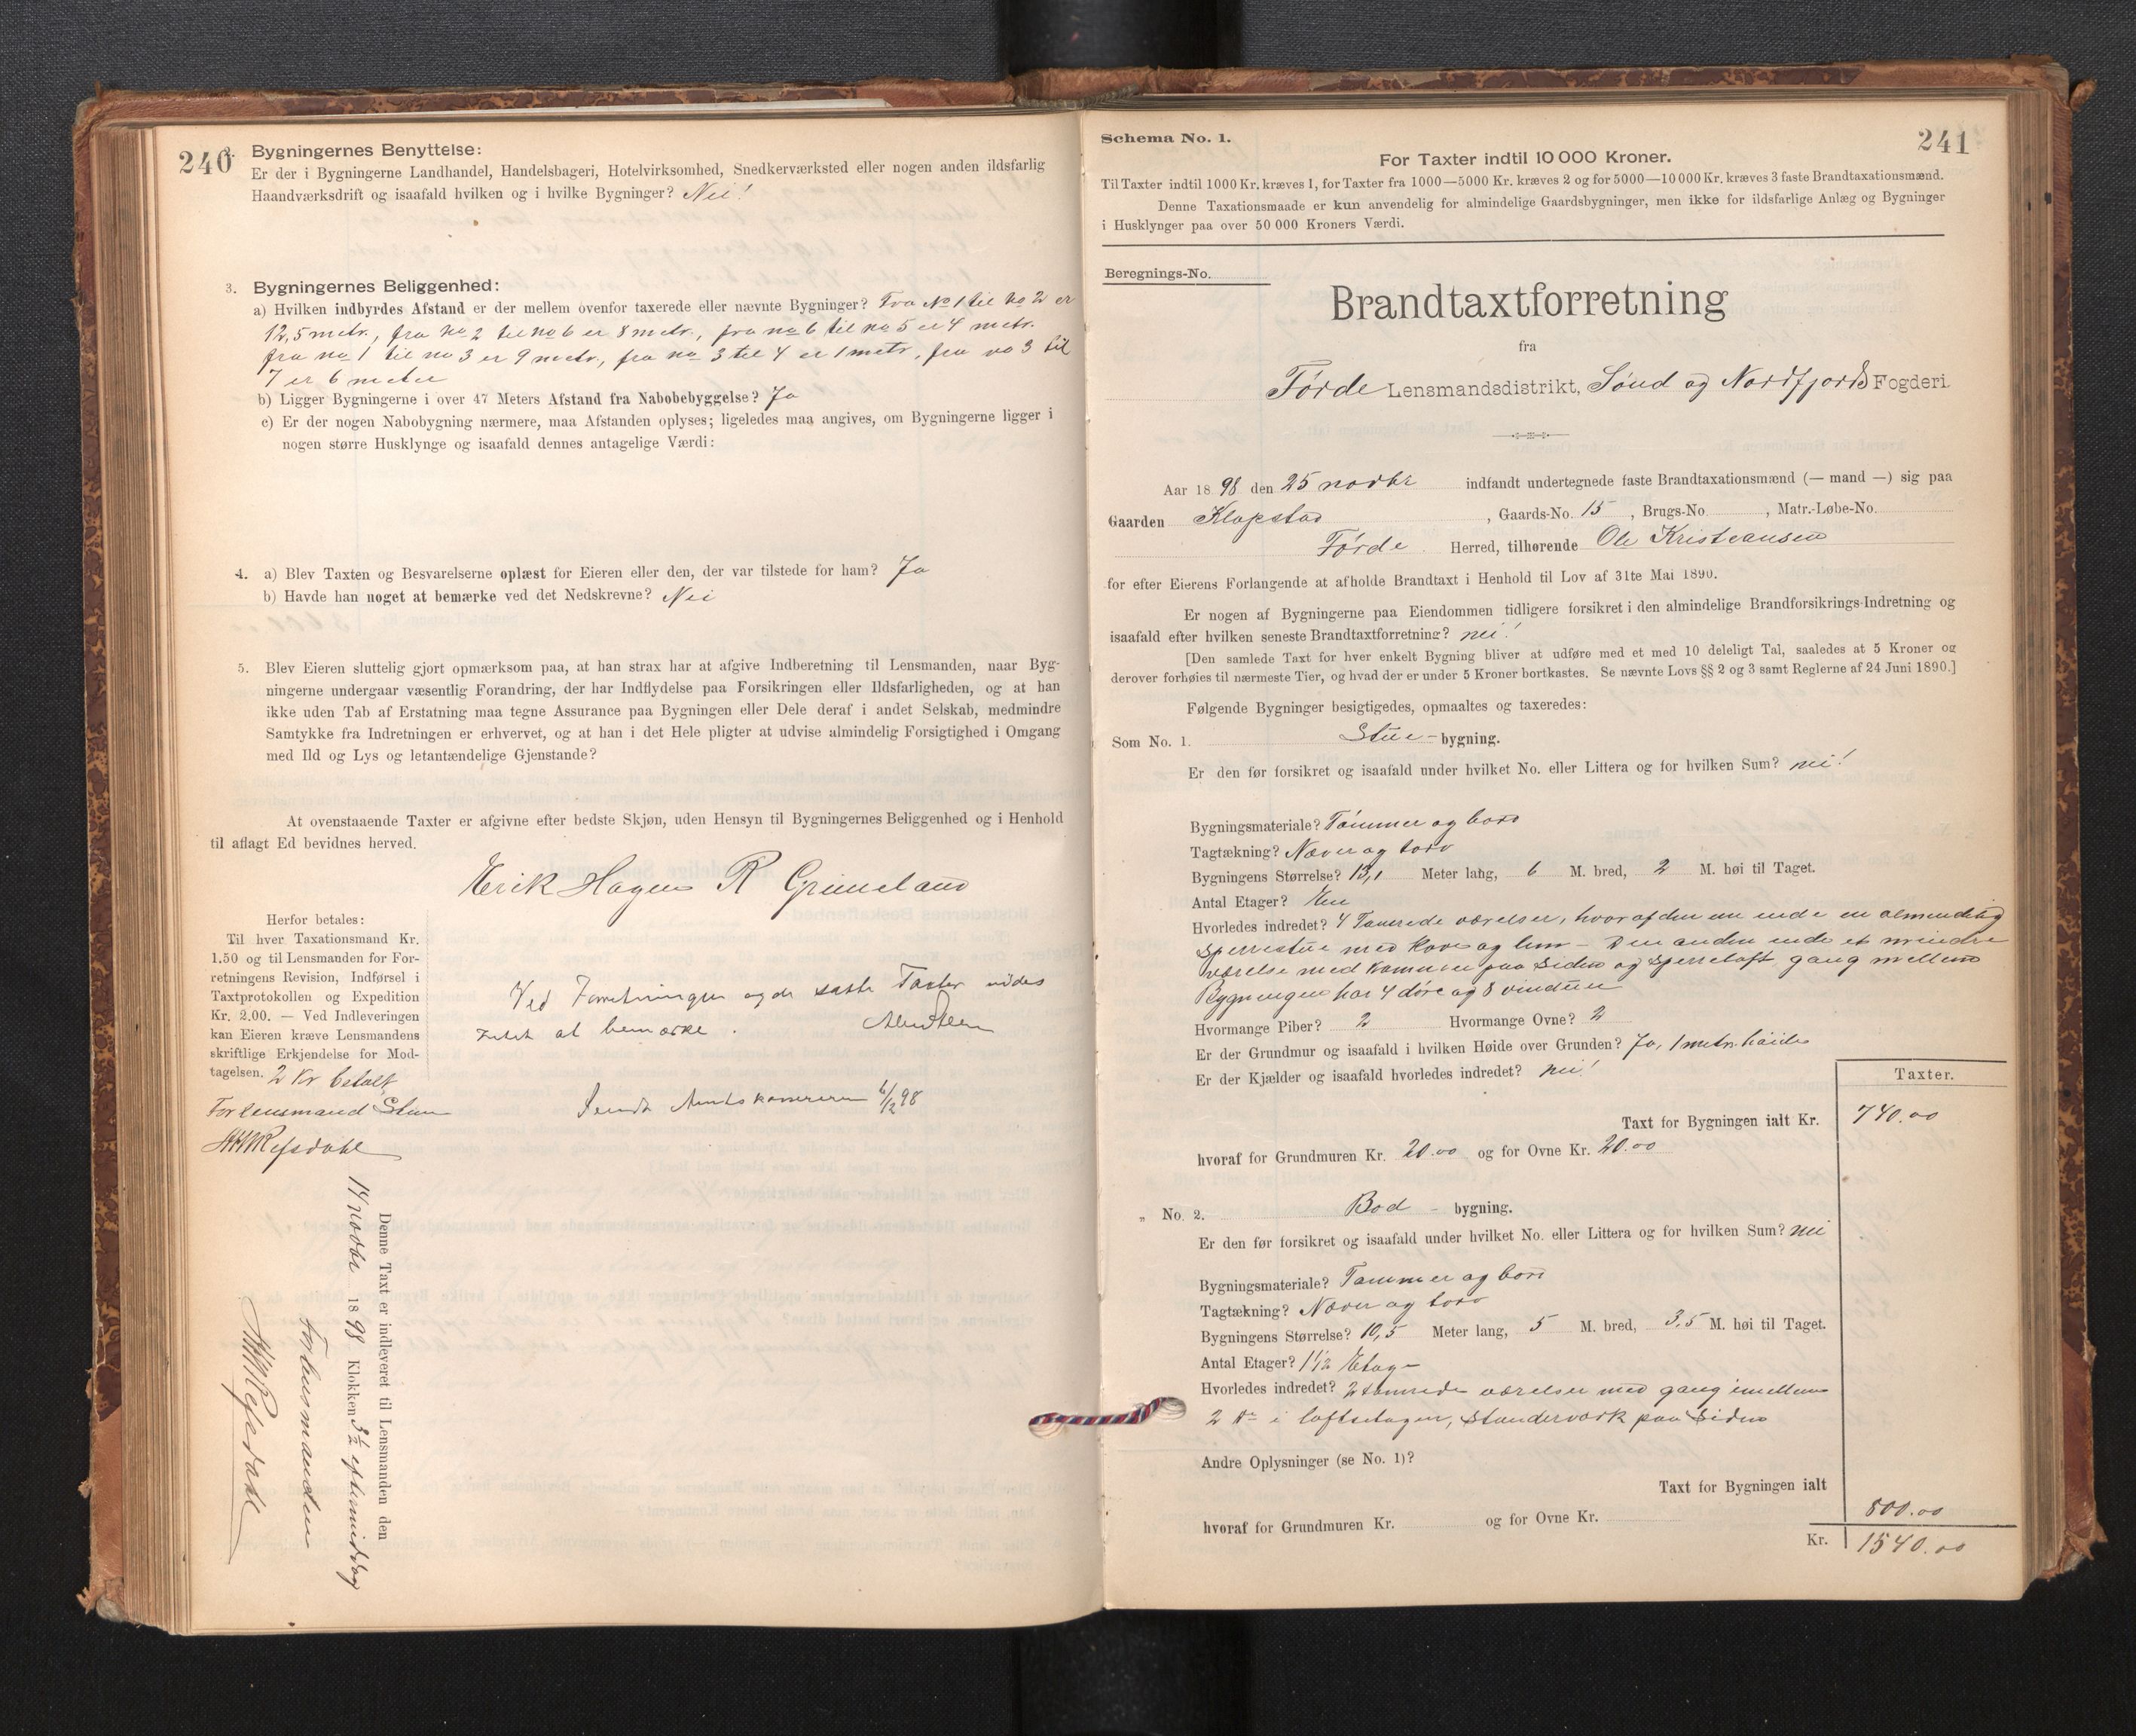 240
2. Bygningernes Benyttelse:
Er der i Bygningerne Landhandel, Handelsbageri, Hotelvirksomhed, Snedkerværksted eller nogen anden ildsfarlig
Haandværksdrift og isaafald hvilken og i hvilke Bygninger? Nei!
3. Bygningernes Beliggenhed:
a) Hvilken indbyrdes Afstand er der mellem ovenfor taxerede eller nævnte Bygninger? Fra No 1 til no 2 er
12,5 metr., fra no 2 til no 6 er 8 metr., fra no 6 til no 5 er 4 metr.
fra no 1 til no 3 er 9 metr., fra no 3 til 4 er 1 metr, fra no 3 til
7 er 6 meter
b) Ligger Bygningerne i over 47 Meters Afstand fra Nabobebyggelse? Ja
c) Er der nogen Nabobygning nærmere, maa Afstanden oplyses; ligeledes maa angives, om Bygningerne ligger i
nogen større Husklynge og isaafald dennes antagelige Værdi:
4. a) Blev Taxten og Besvarelserne oplæst for Eieren eller den, der var tilstede for ham? Ja
b) Havde han noget at bemærke ved det Nedskrevne? Nei
5. Blev Eieren sluttelig gjort opmærksom paa, at han strax har at afgive Indberetning til Lensmanden, naar Byg-
ningerne undergaar væsentlig Forandring, der har Indflydelse paa Forsikringen eller Ildsfarligheden, og at han
ikke uden Tab af Erstatning maa tegne Assurance paa Bygningen eller Dele deraf i andet Selskab, medmindre
Samtykke fra Indretningen er erhvervet, og at han i det Hele pligter at udvise almindelig Forsigtighed i Omgang
med Ild og Lys og letantændelige Gjenstande?
At ovenstaaende Taxter er afgivne efter bedste Skjøn, uden Hensyn til Bygningernes Beliggenhed og i Henhold
til aflagt Ed bevidnes herved.
Erik Hagen R Grimeland
Herfor betales:
Til hver Taxationsmand Kr.
1.50 og til Lensmanden for For-
retningens Revision, Indførsel i
Taxtprotokollen og Expedition
Kr. 2.00. — Ved Indleveringen
kan Eieren kræve Lensmandens
skriftlige Erkjendelse for Mod-
tagelsen. 2 Kr betalt
For lensmand
Refsdahl
Ved Forretningen og de satte Taxter vides
intet at bemærke.
Sendt Amtskontoret 6/12 98
Denne Taxt er indleveret til Lensmanden den
14 novbr 1898 Klokken 3½ eftermiddag
For lensmanden
Refsdahl
241
Schema No. 1.
For Taxter indtil 10 000 Kroner.
Til Taxter indtil 1000 Kr. kræves 1, for Taxter fra 1000—5000 Kr. kræves 2 og for 5000—10 000 Kr. kræves 3 faste Brandtaxationsmænd.
Denne Taxationsmaade er kun anvendelig for almindelige Gaardsbygninger, men ikke for ildsfarlige Anlæg og Bygninger
i Husklynger paa over 50 000 Kroners Værdi.
Beregnings-No.
Brandtaxtforretning
fra
Førde Lensmandsdistrikt, Sønd og Nordfjords Fogderi
Aar 1898 den 25 novbr indfandt undertegnede faste Brandtaxationsmænd (— mand —) sig paa
Gaarden Klopstad, Gaards-No. 15, Brugs-No , Matr.-Løbe-No.
Førde Herred, tilhørende Ole Kristiansen
for efter Eierens Forlangende at afholde Brandtaxt i Henhold til Lov af 31te Mai 1890.
Er nogen af Bygningerne paa Eiendommen tidligere forsikret i den almindelige Brandforsikrings-Indretning og
isaafald efter hvilken seneste Brandtaxtforretning? nei!
[Den samlede Taxt for hver enkelt Bygning bliver at udføre med et med 10 deleligt Tal, saaledes at 5 Kroner og
derover forhøies til nærmeste Tier, og hvad der er under 5 Kroner bortkastes. Se nævnte Lovs §§ 2 og 3 samt Reglerne af 24 Juni 1890.]
Følgende Bygninger besigtigedes, opmaaltes og taxeredes:
Som No. 1. Stue-bygning.
Er den før forsikret og isaafald under hvilket No. eller Littera og for hvilken Sum? nei!
Bygningsmateriale? Tømmer og bord
Tagtækning? Næver og torv
Bygningens Størrelse? 13,1 Meter lang, 6 M. bred, 2 M. høi til Taget.
Antal Etager? En
Hvorledes indredet? 4 Tømrede værelser, hvoraf den ene ende en almindelig
sperrestue med Kove og lem - Den anden ende et mindre
værelse med kammer paa siden og sperreloft, gang mellem
Bygningen har 4 døre og 8 vinduer
Hvormange Piber? 2 Hvormange Ovne? 2
Er der Grundmur og isaafald i hvilken Høide over Grunden? Ja, 1 metr. høide
Er der Kjælder og isaafald hvorledes indredet? nei!
Taxter.
Taxt for Bygningen ialt Kr. 740.00
hvoraf for Grundmuren Kr. 20.00 og for Ovne Kr. 20.00
„ No. 2. Bod - bygning.
Er den før forsikret og isaafald under hvilket No. eller Littera og for hvilken Sum? nei
Bygningsmateriale? Tømmer og bord
Tagtækning? Næver og torv
Bygningens Størrelse? 10,5 Meter lang, 5 M. bred, 3,5 M. høi til Taget.
Antal Etager? 1½ Etage
Hvorledes indredet? 2 tømrede værelser med gang imellem
2 do i loftsetagen, standerværk paa siden
Andre Oplysninger (se No. 1)?
Taxt for Bygningen ialt
800.00
hvoraf for Grundmuren Kr. og for Ovne Kr.
Kr. 1540.00